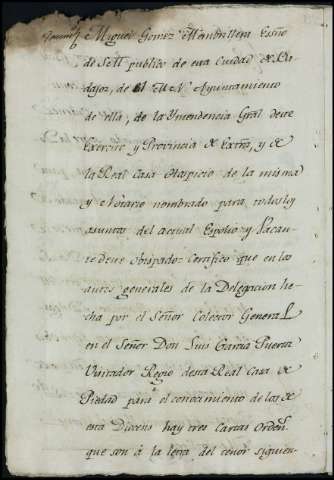 Miguel Gomez Membrillera Essño
de SM publico de esta Ciudad de Ba-
dajoz, de el M. N. Ayuntamiento
de ella, de la Yntendencia Gral de este
Exercito y Provincia de Extrâ, y de
la Real Casa Hospicio de la misma
y Notario nombrado para todos los
asuntos del actual Espolio y Vacan-
te de este Obispado: Certifico que en los
autos generales de la Delegacion he-
cha por el Señor Colector General
en el Señor Don Luis Garcia Puerta
Visitador Regio desta Real Casa de
Piedad para el conocimiento de los de
esta Diocesis hay tres Cartas Ordens.
que son à la letra del tenor siguien-